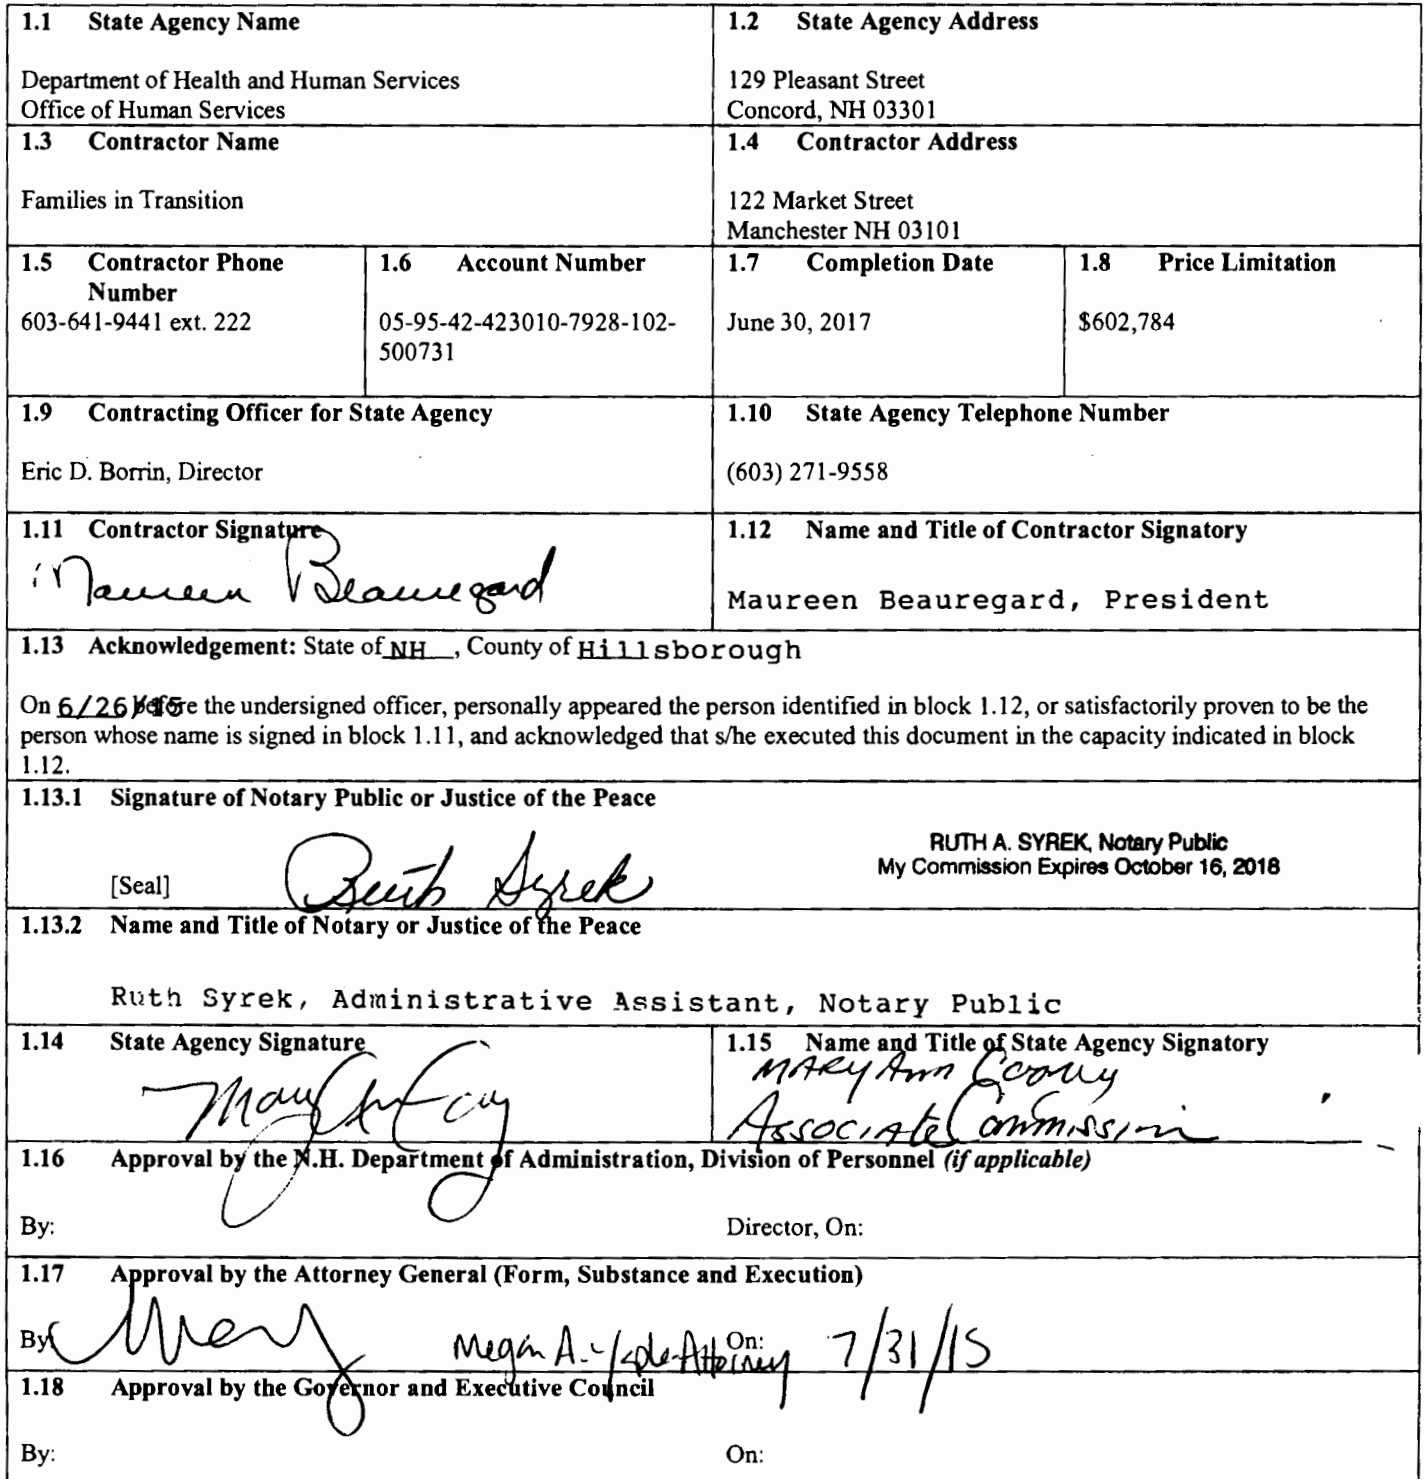 1.1 State Agency Name
Department of Health and Human Services
Office of Human Services
1.2 State Agency Address
129 Pleasant Street
Concord, NH 03301
1.3 Contractor Name
Families in Transition
1.4 Contractor Address
122 Market Street
Manchester NH 03101
1.5 Contractor Phone
Number
603-641-9441 ext. 222
1.6 Account Number
05-95-42-423010-7928-102-
500731
1.7 Completion Date
June 30, 2017
1.8 Price Limitation
$602,784
1.9 Contracting Officer for State Agency
Eric D. Borrin, Director
1.10 State Agency Telephone Number
(603) 271-9558
1.11 Contractor Signature
Maureen Beauregard
1.12 Name and Title of Contractor Signatory
Maureen Beauregard, President
1.13 Acknowledgement: State of NH , County of Hillsborough
On 6/26/15 before the undersigned officer, personally appeared the person identified in block 1.12, or satisfactorily proven to be the
person whose name is signed in block 1.11, and acknowledged that s/he executed this document in the capacity indicated in block
1.12.
1.13.1 Signature of Notary Public or Justice of the Peace
RUTH A. SYREK, Notary Public
My Commission Expires October 16, 2018
[Seal] Ruth Syrek
1.13.2 Name and Title of Notary or Justice of the Peace
Ruth Syrek, Administrative Assistant, Notary Public
1.14 State Agency Signature
1.15 Name and Title of State Agency Signatory
MARY Ann Cooney
Associate Commission
1.16 Approval by the N.H. Department of Administration, Division of Personnel (if applicable)
By:
Director, On:
1.17 Approval by the Attorney General (Form, Substance and Execution)
By: Megan A. Attorney
On: 7/31/15
1.18 Approval by the Governor and Executive Council
By:
On: